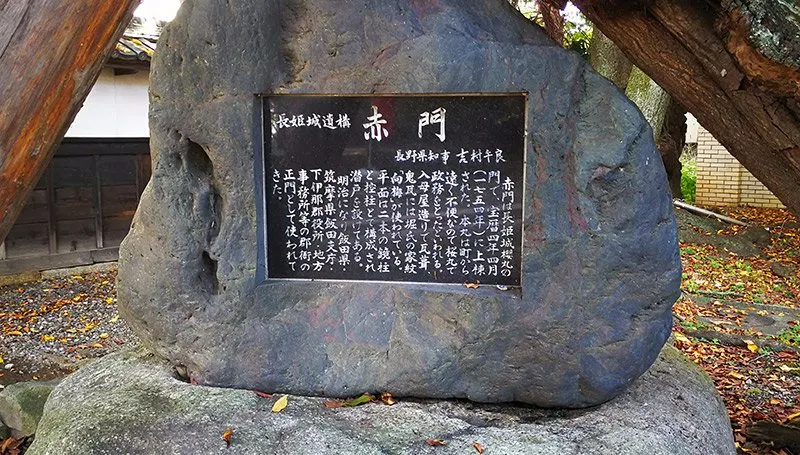 長姫城遺構
赤門
長野県知事 吉村午良
赤門は長姫城桜丸の
門で、宝暦四年四月
(一七五四年)に上棟
された。本丸は町から
遠く不便なので桜丸で
政務をとったといわれる。
入母屋造りで瓦葺、
鬼瓦には堀氏の家紋
「向梅」が使われている。
平面は二本の鏡柱
と控柱とで構成され
潜戸を設けてある。
明治になり飯田県・
筑摩県飯田支庁・
下伊那郡役所・地方
事務所等の郡衙の
正門として使われて
きた。